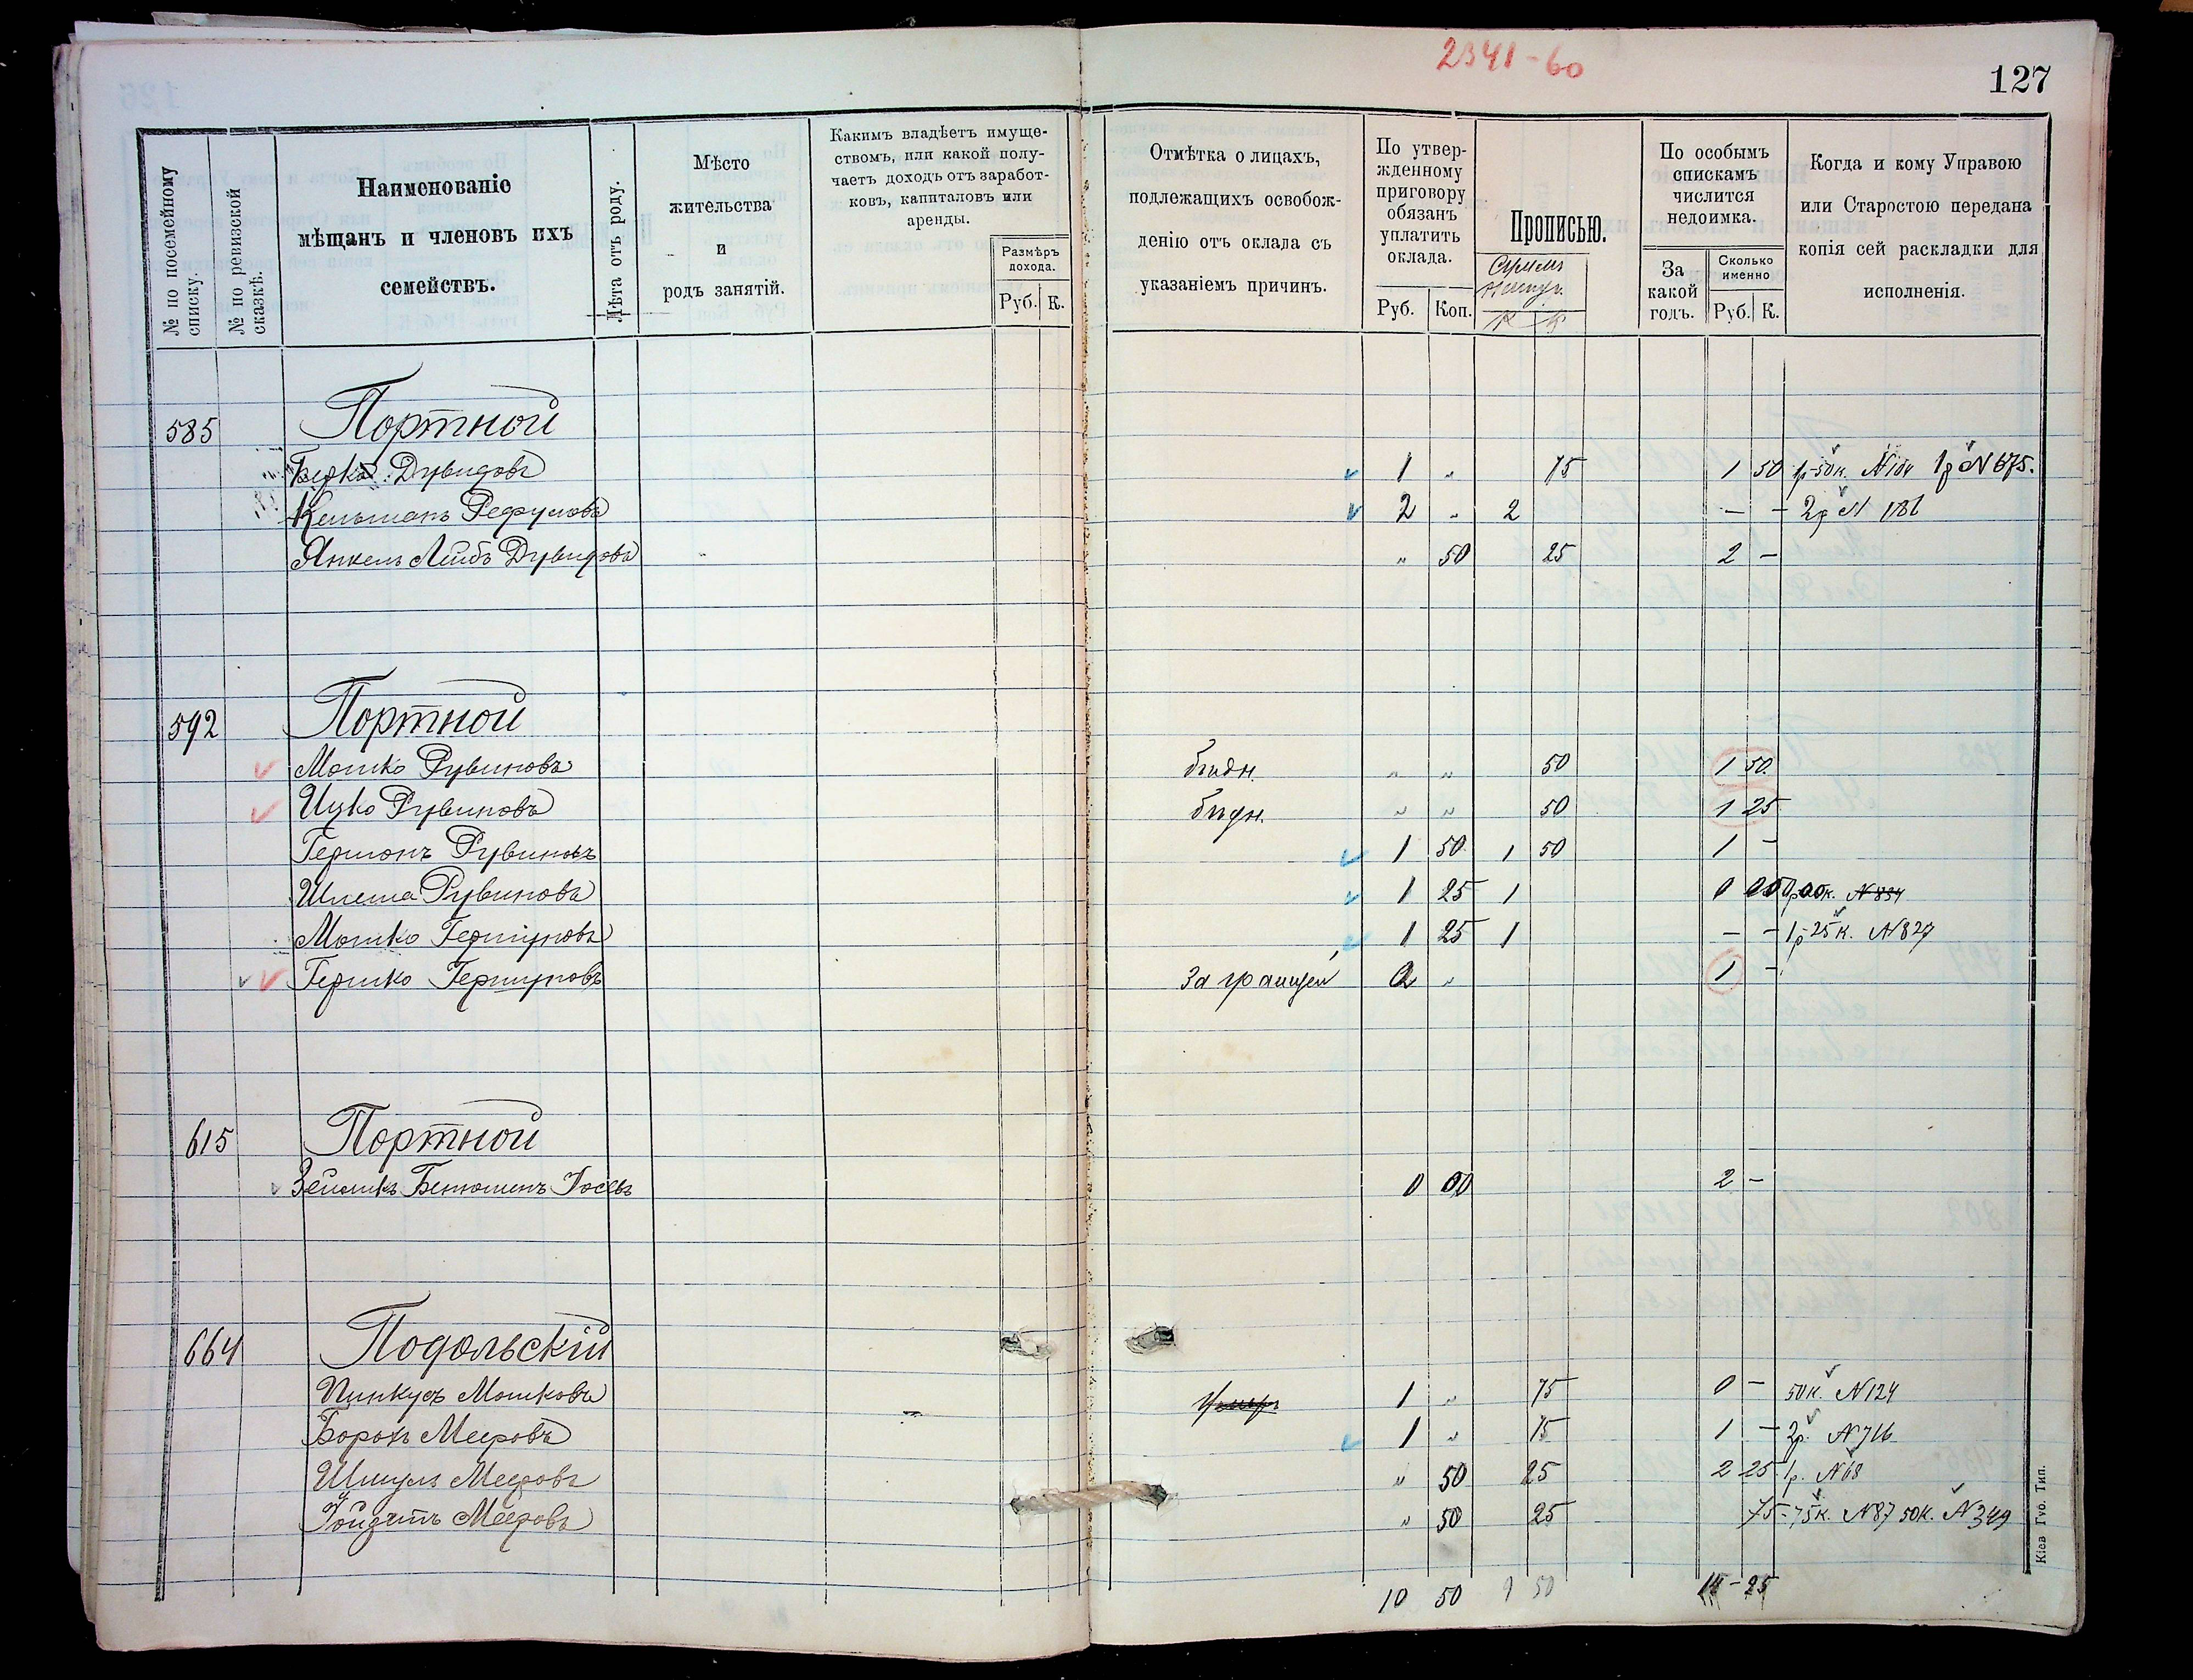 2341-60
127
№ по посемейному списку.
№ по ревизской сказкѣ.
Наименованіе мѣщанъ и членовъ ихъ семействъ.
Лѣта отъ роду.
Мѣсто жительства и родъ занятій.
Какимъ владѣетъ имуществомъ, или какой получаетъ доходъ отъ заработковъ, капиталовъ или аренды.
Размѣръ дохода.
Руб. К.
Отмѣтка о лицахъ, подлежащихъ освобожденію отъ оклада съ указаніемъ причинъ.
По утвержденному приговору обязанъ уплатить оклада.
Руб. Коп.
Прописью.
По особымъ спискамъ числится недоимка.
За какой годъ.
Сколько именно
Руб. К.
Когда и кому Управою или Старостою передана копія сей раскладки для исполненія.
585 Портной
Берко Дувидовъ 1 „ 75 1 50 1р-50к. N104 1р N675.
Кельманъ 2 „ 2 – – 2р N 186
Янкель Лейбъ Дувидовъ „ 50 25 2 –
592 Портной
Мошко Рувиновъ бѣдн. „ „ 50 1 50
Ицко Рувиновъ бѣдн. „ „ 50 1 25
Гершонъ Рувиновъ 1 50 1 50 1 –
Шлема Рувиновъ 1 25 1 N 834
Мошко Гершуновъ 1 25 1 – – 1р 25к. N827
Гершко Гершуновъ За границей „ 1 –
615 Портной
Зейликъ Бенюминъ Іосевъ 0 00 2 –
664 Подольскій
Пинкусъ Мошковъ Умеръ 1 „ 75 0 – 50к. N124
Борохъ Мееровъ 1 „ 75 1 – 2р. N716
Шмуль Мееровъ „ 50 25 2 25 1р. N68
Мееровъ „ 50 25 75 – 75к. N87 50к. N349
10 50 9 50 14 – 25
Кіев. Губ. Тип.